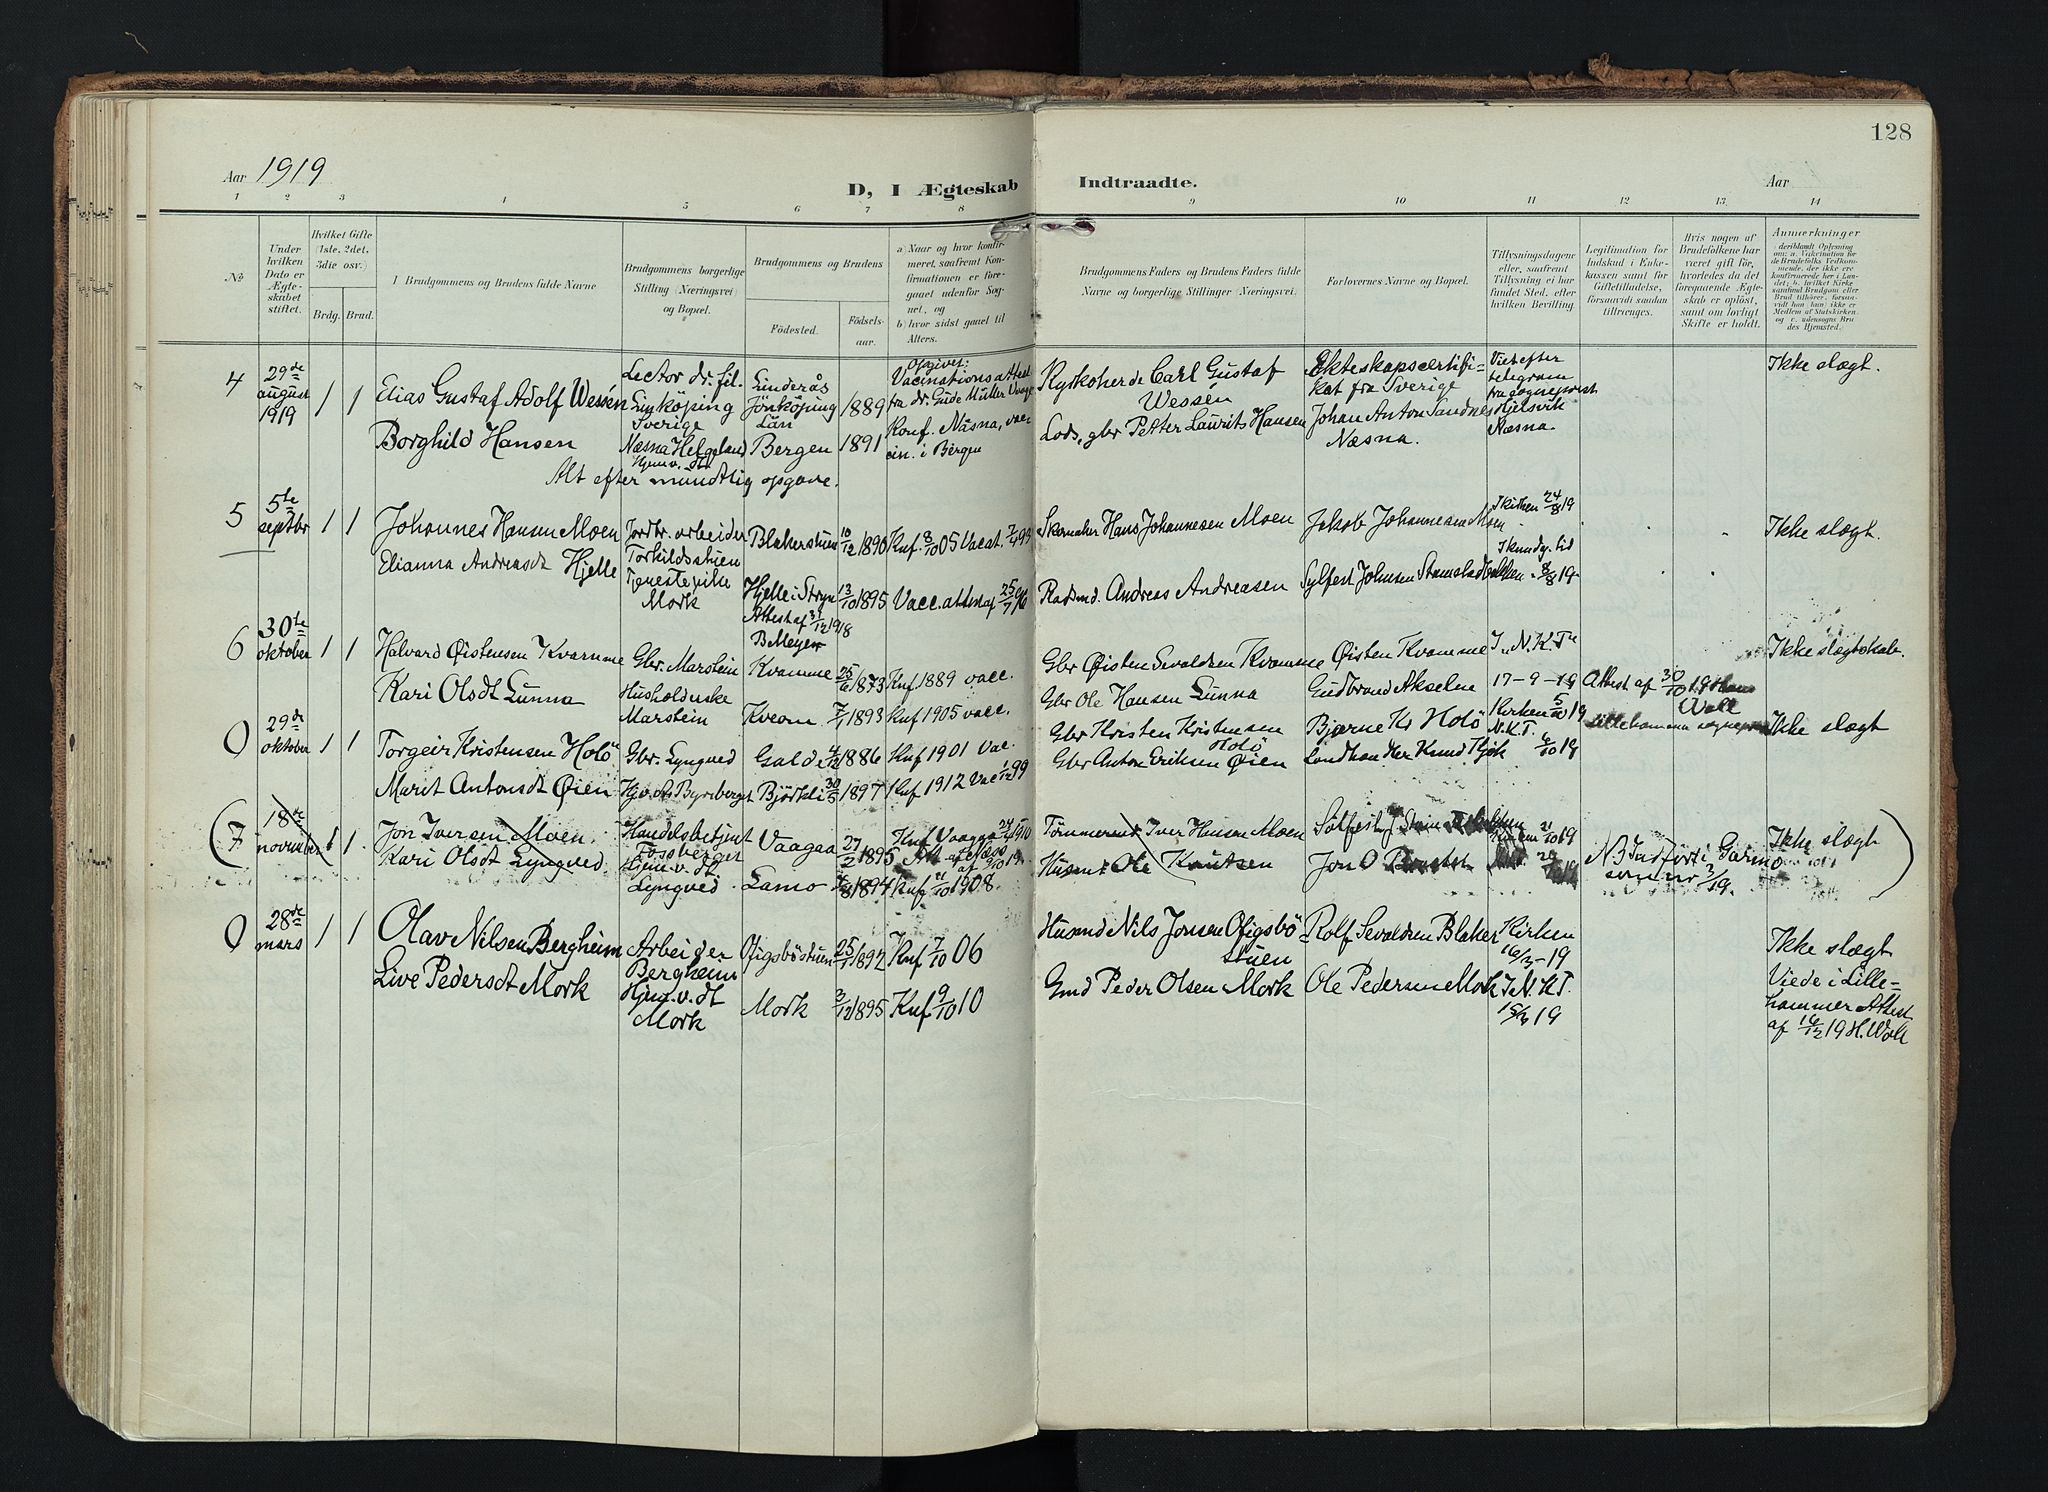 128
Aar 1919
D, I Ægteskab Indtraadte.
Aar
1 2 3 4 5 6 7 8 9 10 11 12 13 14
No.
Under hvilken Dato er Ægteskabet stiftet.
Hvilket Gifte (1ste, 2det, 3die osv.)
Brdg. Brud.
I Brudgommens og Brudens fulde Navne
Brudgommens borgerlige Stilling (Næringsvei) og Bopæl.
Brudgommens og Brudens
Fødested.
Fødselsaar.
a) Naar og hvor konfirmeret, saafremt Konfirmationen er foregaaet udenfor Sognet, og
b) hvor sidst gaaet til Alters.
Brudgommens Faders og Brudens Faders fulde Navne og borgerlige Stillinger (Næringsvei).
Forlovernes Navne og Bopæl.
Tillysningsdagene eller, saafremt Tillysning ei har fundet Sted, efter hvilken Bevilling
Legitimation for Indskud i Enkekassen samt for Giftetilladelse, forsaavidt saadan tiltrænges.
Hvis nogen af Brudefolkene har været gift før, hvorledes da det foregaaende Ægteskab er opløst, samt om lovligt Skifte er holdt.
Anmerkninger
deriblandt Oplysning om: a. Vakcination for de Brudefolks Vedkommende, der ikke ere konfirmerede her i Landet; b. hvilket Kirkesamfund Brudgom eller Brud tilhører, forsaavidt han (hun) ikke er Medlem af Statskirken, og c. udensogns Brudes Hjemsted.
4
29de august 1919
1 1
Elias Gustaf Adolf Wessén
Lector dr. fil. Linköping Sverige
Linderås Jönköping Län
1889
Opgivet: Vacinationsattest fra dr. Gude Müller Vaage
Kyrkoherde Carl Gustaf Wessén
Ekteskapscertifikat fra Sverige
Viet efter telegram fra sogneprest Hjelsvik Næsna.
Ikke slægt.
Borghild Hansen
Næsna Helgeland Hjem.v. dt.
Bergen
1891
Konf. Näsna, vaccin. i Bergen
Lods, gbr Petter Laurits Hansen
Johan Anton Sandnes Næsna.
Alt efter mundtlig opgave.
5
5te septbr
1 1
Johannes Hansen Moen
Jordbr. arbeider Torkildsstuen
Blakerstuen
10/12 1890
Knf. 8/10 05 Vacat. 7/4 93
Skomaker Hans Johannesen Moen
Jakob Johannesen Moen
I kirken 24/8 19
Ikke slægt.
Elianna Andreasdt Hjelle
Tjenestepike Mork
Hjelle i Stryn
13/10 1895
Attest af 31/12 1918
Vacc. attest af 25/7 96
Andreas Andreasen
Sylfest Johnsen
8/8 19
6
30te oktober
1 1
Halvard Øistensen Kvamme
Gbr. Marstein
Kvamme
25/6 1873
Knf 1889 vacc.
Gbr Øisten Sevaldsen Kvamme
Øisten Kvamme
I N. K. T.
Ikke slægtskab.
Kari Olsdt Lunna
Husholderske Marstein
Kveom
7/1 1893
Knf 1905 vacc.
Gbr Ole Hansen Lunna
Gudbrand Akselne
17-9-19
Attest af 30/10 19 Hans Woll
0
29de oktober
1 1
Torgeir Kristensen Holö
Gbr. Lyngved
Galde
4/12 1886
Knf 1901 Vac.
Gbr Kristen Kristensen Holö
Bjarne Kr Holö
Kirken 5/10 19
Lillehammer
Ikke slægt
Marit Antonsdt Øien
Hj.v. dt Byrebergst
Björkli
30/5 1897
Knf 1912 Vac 1/12 99
Gbr Anton Eriksen Øien
Landhandler Knud Kjök
N.K.T. 6/10 19
(7
18de november
1 1
Jon Iversen Moen
Handelsbetjent Fossberget
Vaagaa
27/2 1895
Knf Vaagaa 24/4 1910
Tømmermd Iver Hansen Moen
Kirken 21/10 19
NB Indfört i Garmo som nr 3/19.
Ikke slægt)
Kari Olsdt Lyngved
Hjem. v. dt Lyngved
Lamo
4/8 1894
Knf 11/10 1908.
Husmd Ole Knutsen
Jon O
0
28de mars
1 1
Olav Nilsen Bergheim
Arbeider Bergheim
Ofigsbøstuen
25/1 1892
Knf 7/10 06
Husmd Nils Jonsen Ofigsbøstuen
Rolf Sevaldsen Blaker
Kirken 16/3-19
Ikke slægt
Live Pedersdt Mork
Hjem. v. dt Mork
Mork
3/12 1895
Knf 9/10 10
Gmd Peder Olsen Mork
Ole Pedersen Mork
I N. K. T. 15/3 19
Viede i Lillehammer Attest af 16/12 19 H. Woll